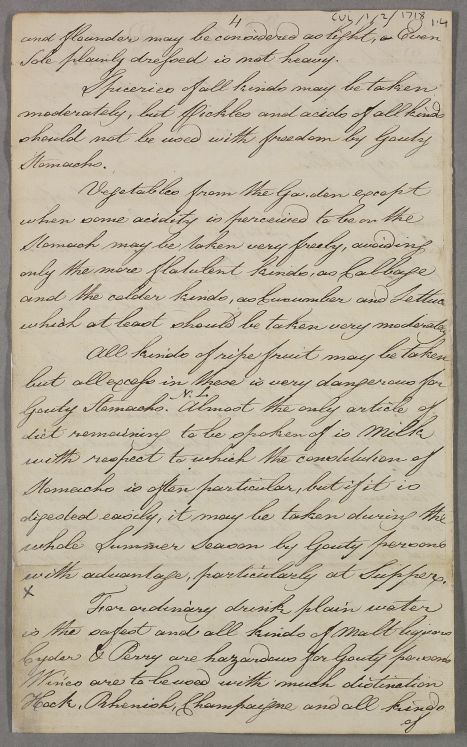 4
CUL/1/2/1718
1.4
and flounder may be considered as light, & Even
Sole plainly dressed is not heavy.
Spiceries of all kinds may be taken
moderately, but Pickles and acids of all kinds
should not be used with freedom by Gouty
Stomachs.
Vegetables from the Garden except
when some acidity is perceived to be on the
Stomach may be taken very freely, avoiding
only the more flatulent kinds, as Cabbage
and the colder kinds, as Cucumber and Lettuce
which at least should be taken very moderately
All kinds of ripe fruit may be taken
but all excess in these is very dangerous for
Gouty Stomachs. N.L. Almost the only article of
diet remaining to be spoken of is Milk
with respect to which the constitution of
Stomachs is often particular, but if it is
digested easily, it may be taken during the
whole Summer Season by Gouty persons
with advantage, particularly at Supper.
x
For ordinary drink plain water
is the safest and all kinds of Malt liquors
Cyder & Perry are hazardous for Gouty persons
Wines are to be used with much distinction
Hock, Rhenish, Champaigne and all kinds
of